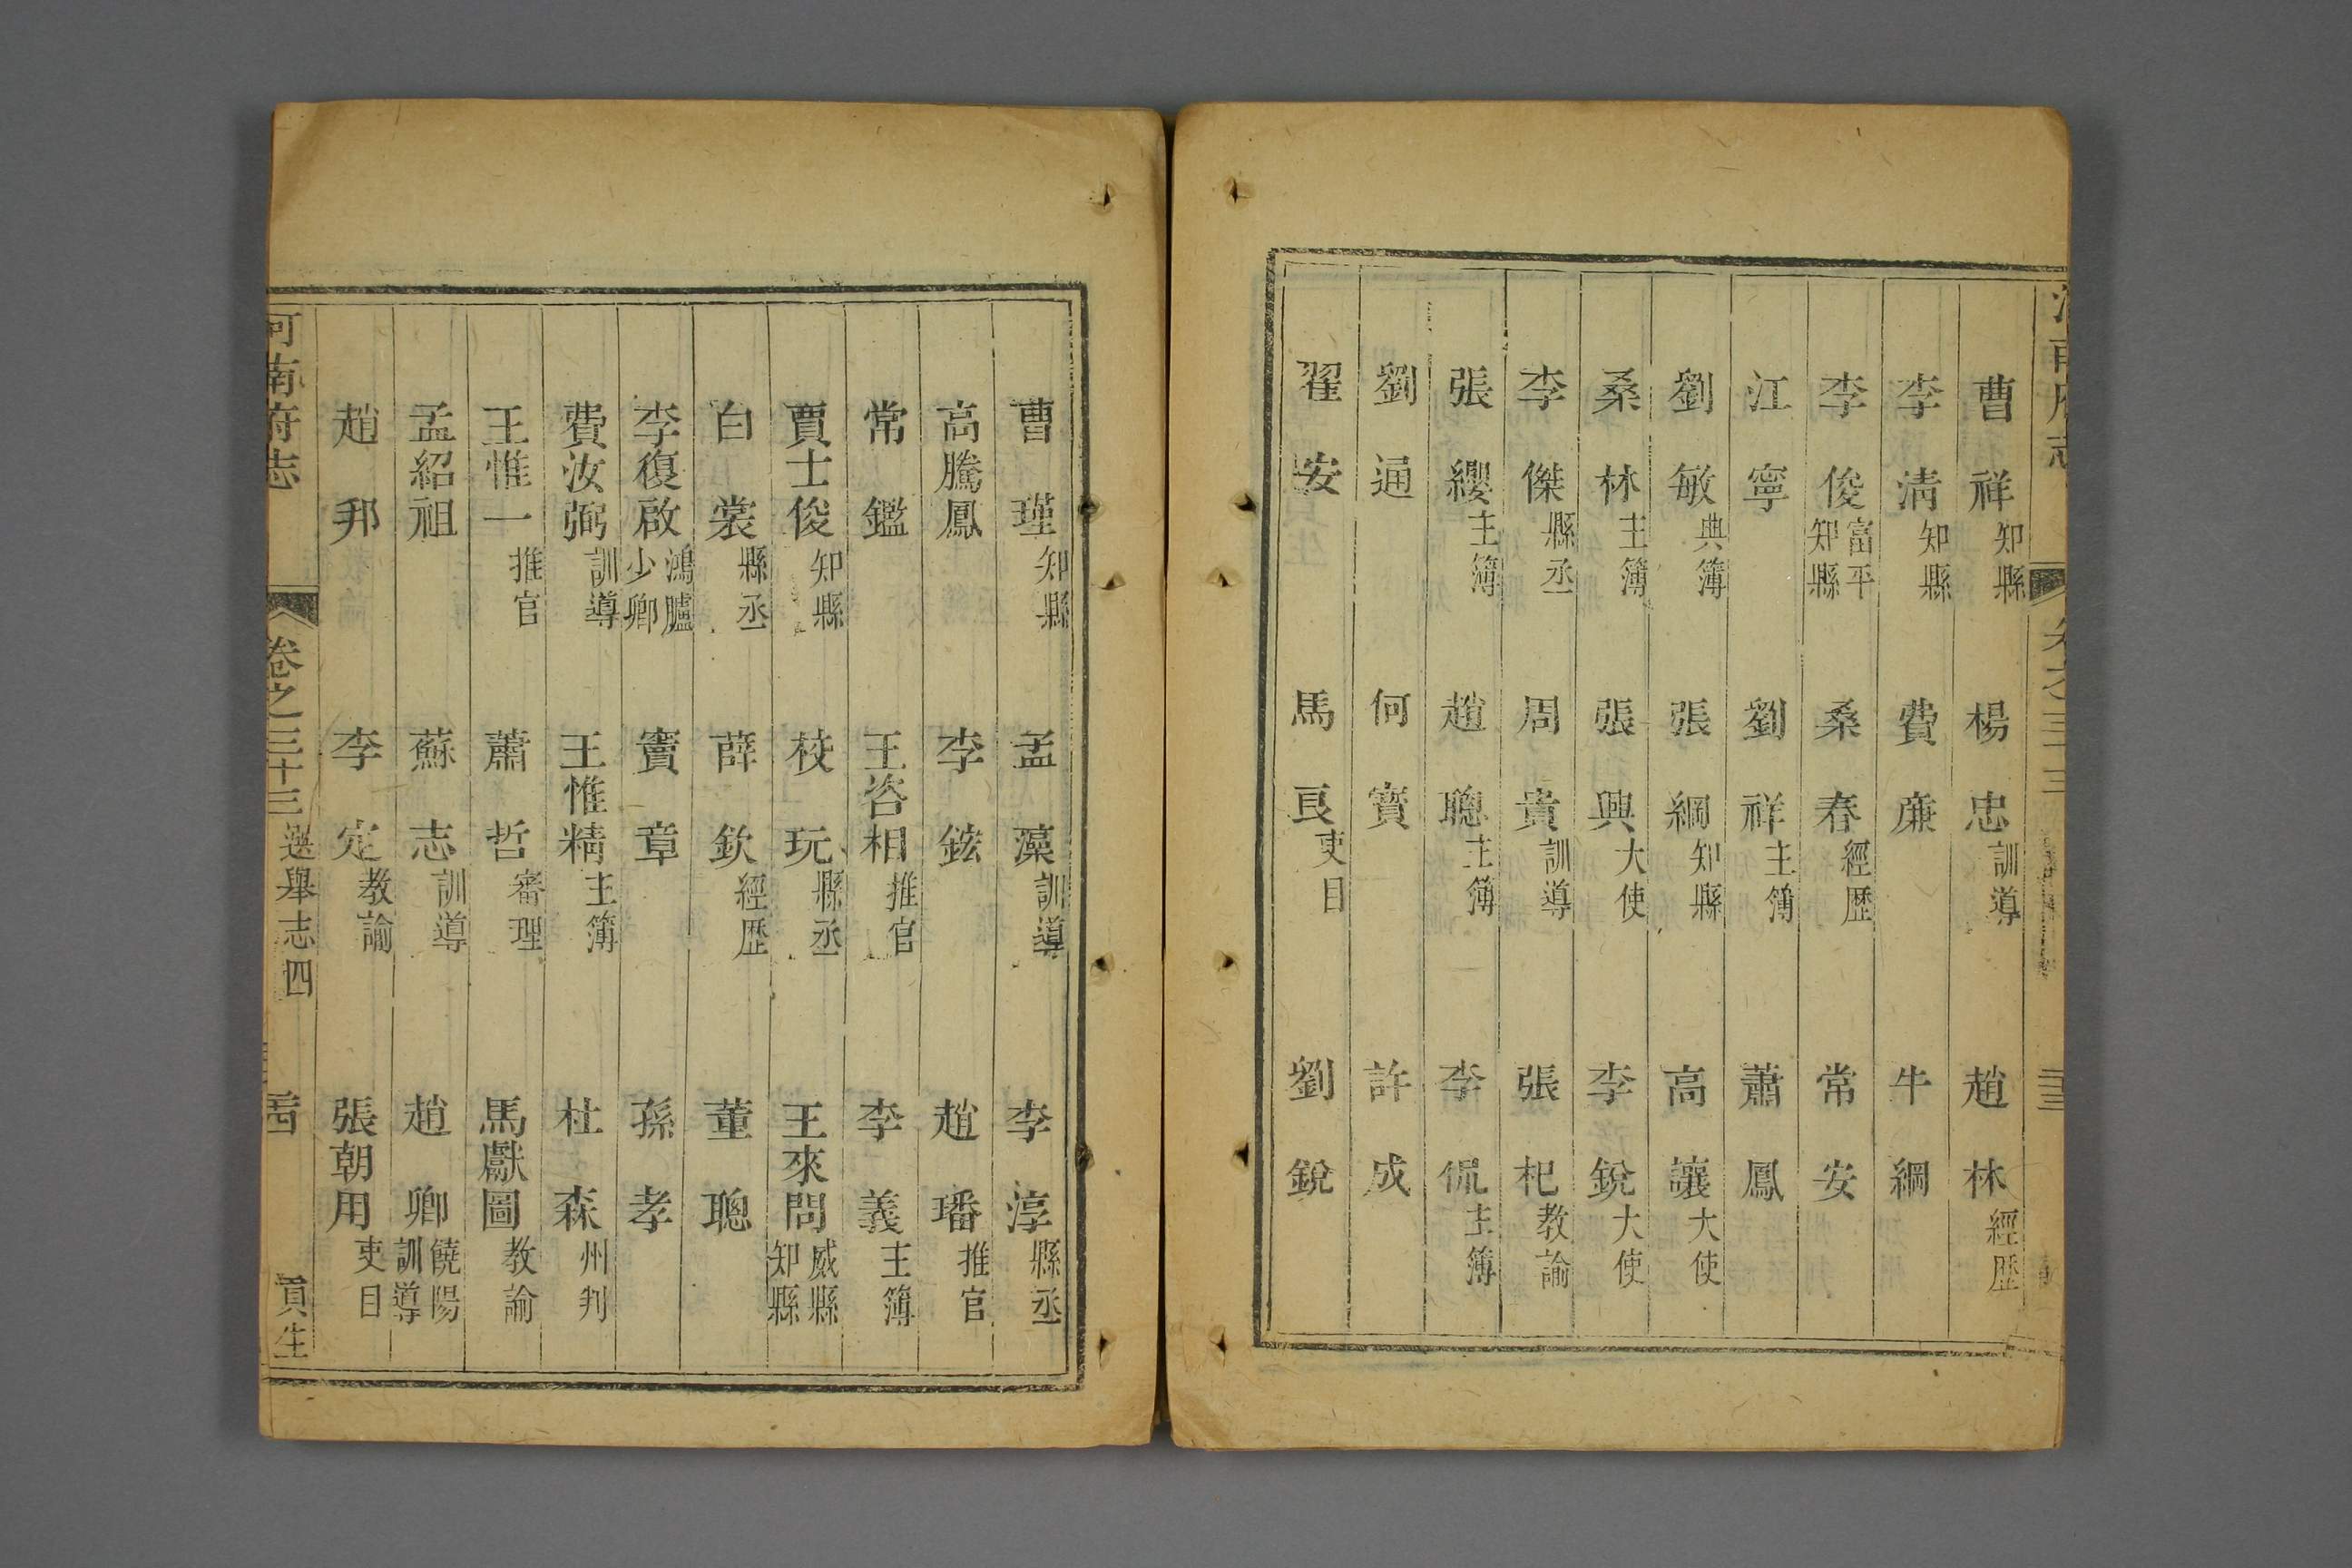 曹祥知縣 楊忠訓導 趙林經歷
李清知縣 費廉 牛綱
李俊富平知縣 桑春經歷 常安
江寧 劉祥主簿 蕭鳳
劉敏典簿 張綱知縣 高讓大使
桑林主簿 張興大使 李銳大使
李傑縣丞 周貴訓導 張杞教諭
張纓主簿 趙聰主簿 李侃主簿
劉通 何寶 許成
翟安 馬良吏目 劉銳
曹瑾知縣 孟藻訓導 李淳縣丞
高騰鳳 李鉉 趙璠推官
常鑑 王咨相推官 李義主簿
賈士俊知縣 校玩縣丞 王來問威縣知縣
白裳縣丞 薛欽經歷 董聰
李復啟鴻臚少卿 竇章 孫孝
費汝弼訓導 王惟精主簿 杜森州判
王惟一推官 蕭哲審理 馬獻圖教諭
孟紹祖 蘇志訓導 趙卿饒陽訓導
趙邦 李定教諭 張朝用吏目
河南府志 卷之三十三 選舉志四 貢生